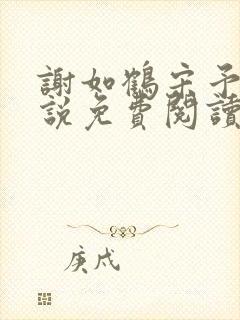 謝如鶴宋予
說免費閱讀
庚戍